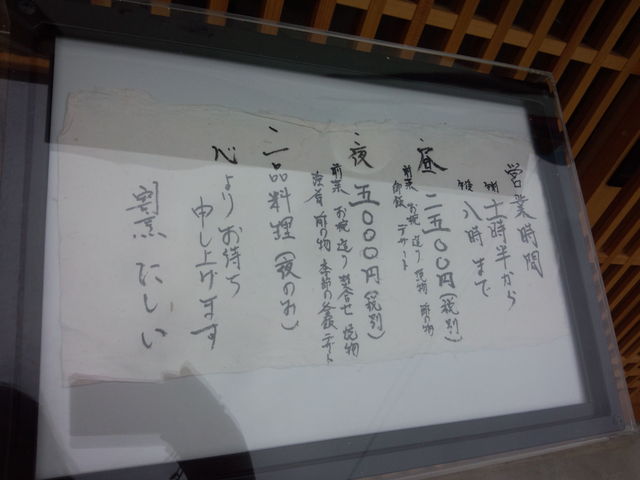 営業時間
午前 十一時半から
午後 八時まで
一、昼 二五〇〇円(税別)
前菜 お椀 造り 焼物 蒸し物
御飯 デザート
一、夜 五〇〇〇円(税別)
前菜 お椀 造り 焼物
蒸し物 季節の釜飯 デザート
一、一品料理(夜のみ)
心よりお待ち
申し上げます
割烹 にしい